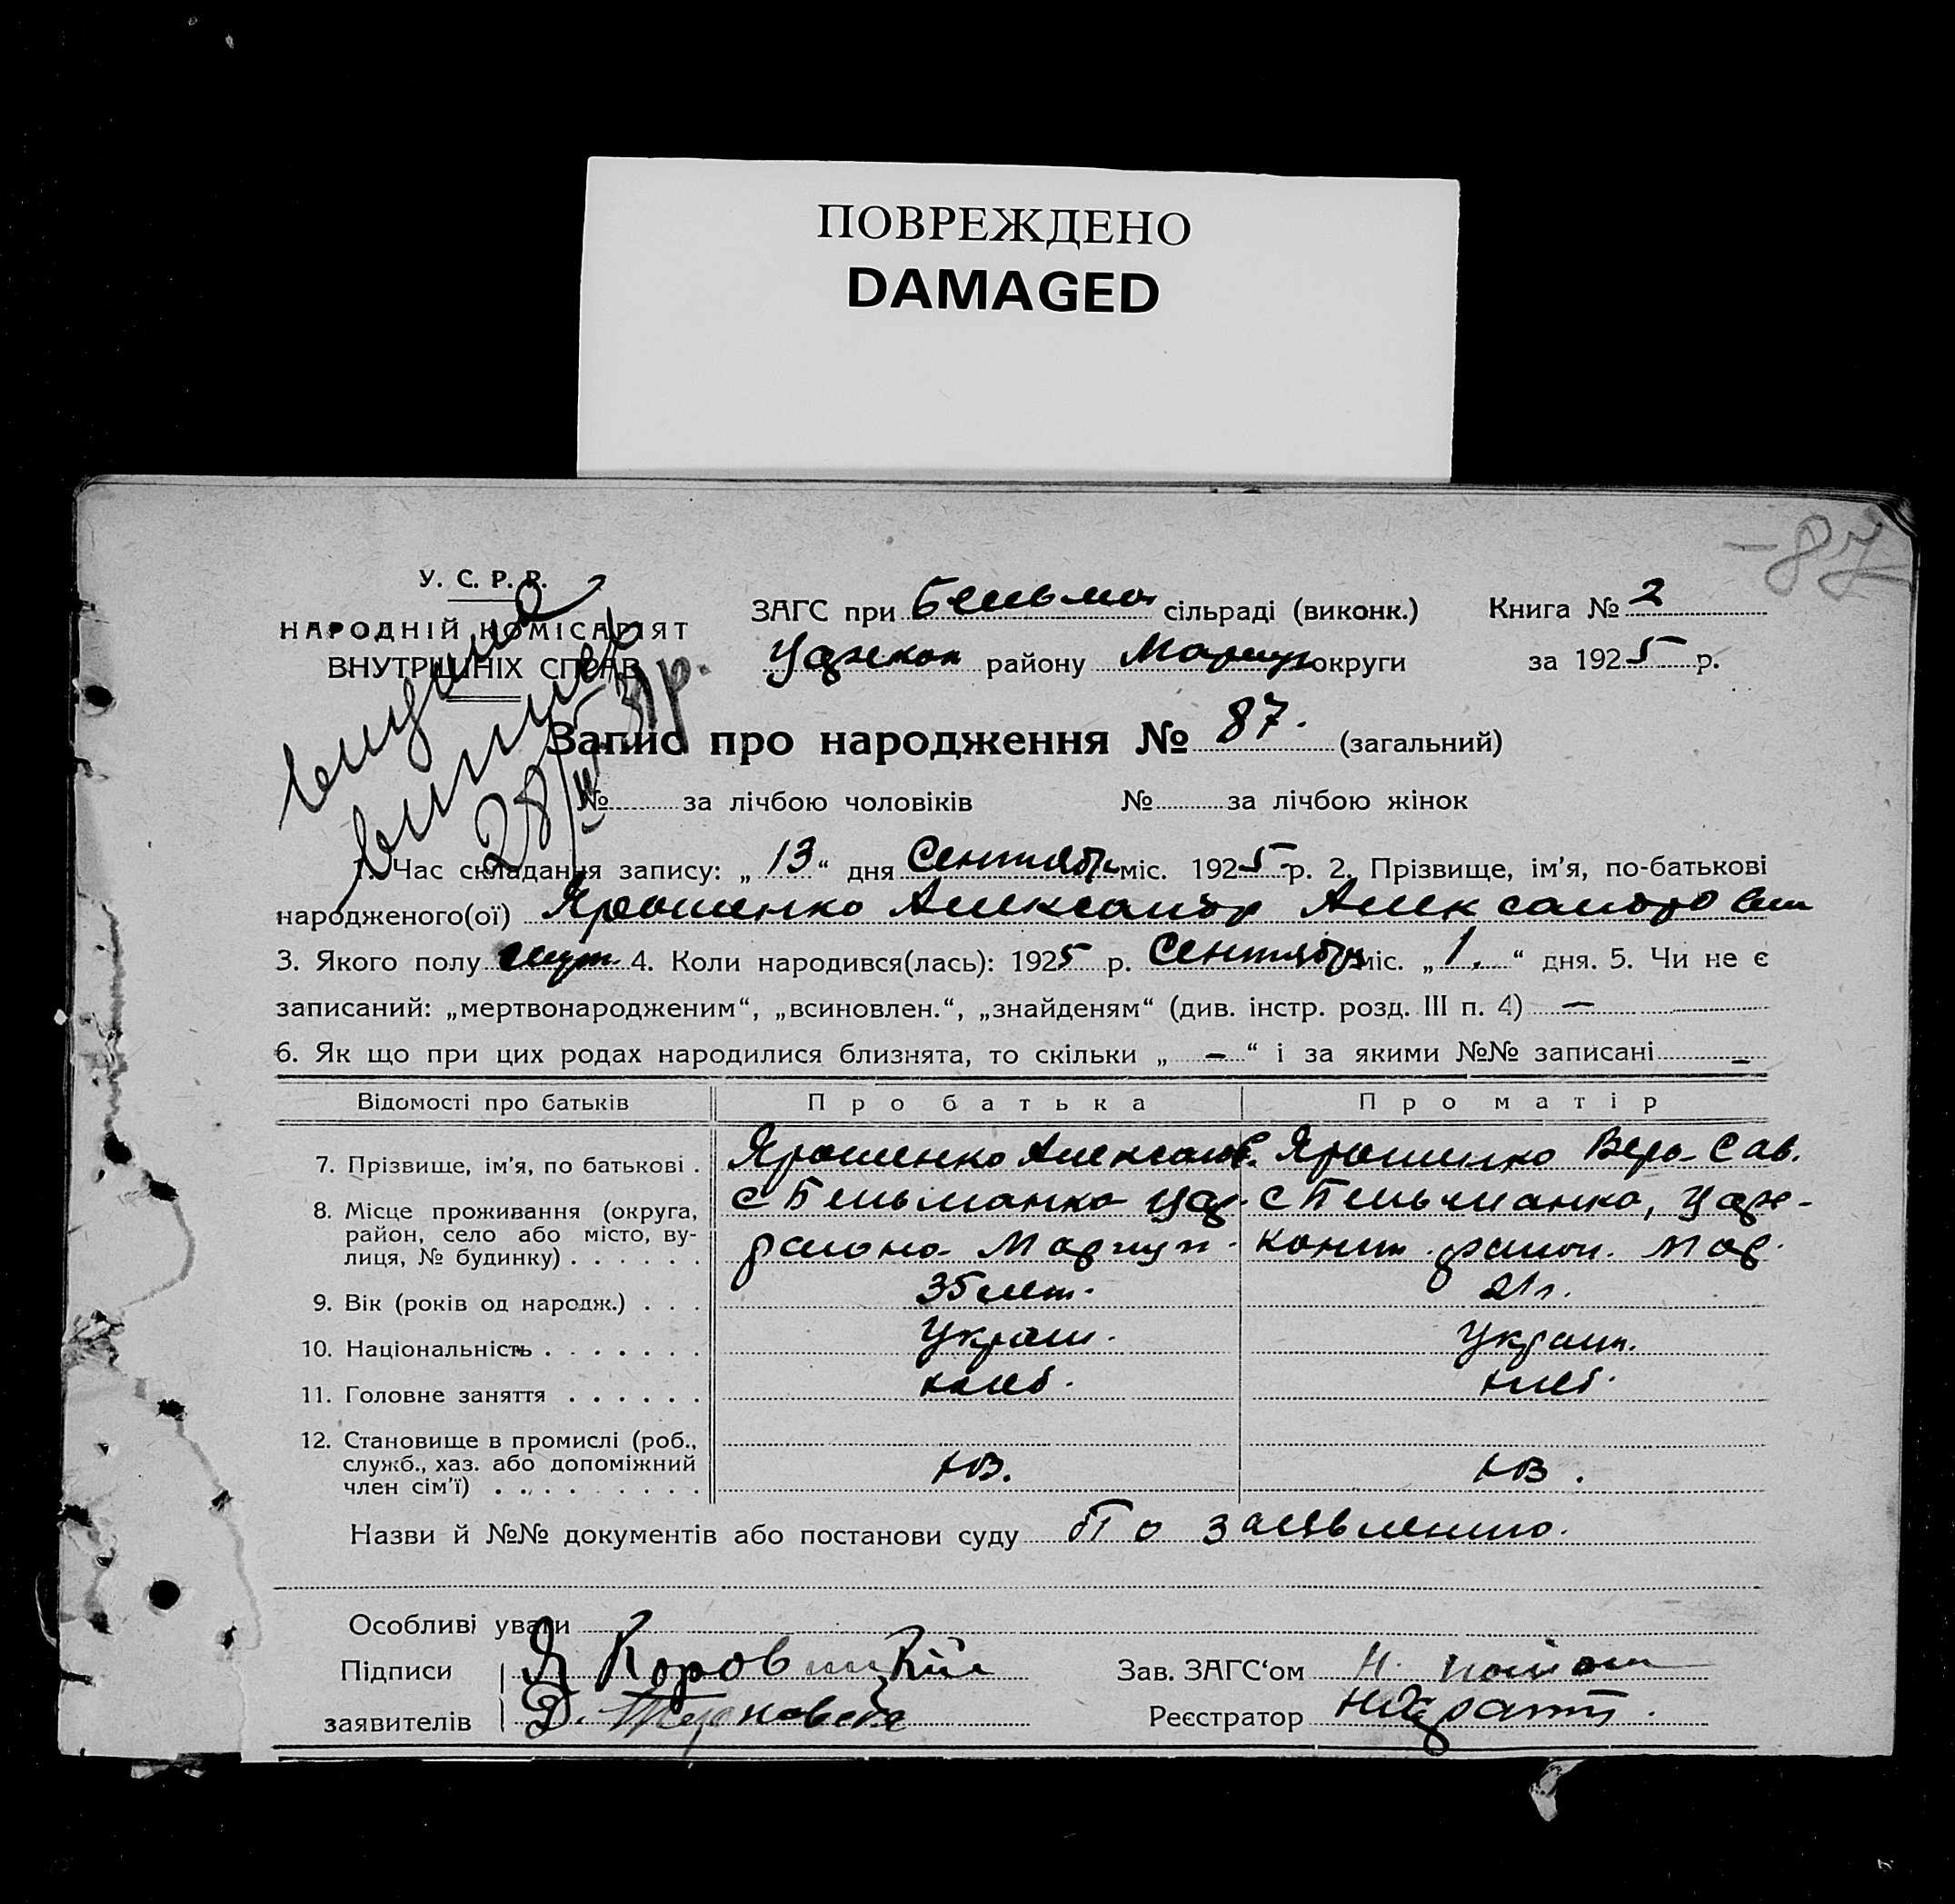 ПОВРЕЖДЕНО
DAMAGED
-87
У. С. Р. Р.
НАРОДНІЙ КОМІСАРІЯТ
ВНУТРІШНІХ СПРАВ
видана
28/
ЗАГС при Бельма сільраді (виконк.) Книга № 2
району Мариуп округи за 1925 р.
Запис про народження № 87. (загальний)
№ за лічбою чоловіків № за лічбою жінок
1. Час складання запису: „13“ дня Сентября міс. 1925 р. 2. Прізвище, ім’я, по-батькові
народженого(ої) Ярошенко Александр Александрович
3. Якого полу 4. Коли народився(лась): 1925 р. Сентября міс. „1.“ дня. 5. Чи не є
записаний: „мертвонародженим“, „всиновлен.“, „знайденям“ (див. інстр. розд. III п. 4) —
6. Як що при цих родах народилися близнята, то скільки „ — “ і за якими №№ записані —
Відомості про батьків Про батька Про матір
7. Прізвище, ім’я, по батькові . Ярошенко Александ. Ярошенко Вера Сав.
8. Місце проживання (округа, с Бельманка с Бельманка,
район, село або місто, ву- района Мариуп. район. Мар.
лиця, № будинку) . . . . . .
9. Вік (років од народж.) . . . 35 лет. 21 л.
10. Національність . . . . . . . Украин. Украин.
11. Головне заняття . . . . . . хлеб. хлеб.
12. Становище в промислі (роб.,
служб., хаз. або допоміжний
член сім’ї) . . . . . . . . .
Назви й №№ документів або постанови суду По заявлению.
Особливі уваги
Підписи Я Зав. ЗАГС‘ом Н.
заявителів Д. Терновская Реєстратор